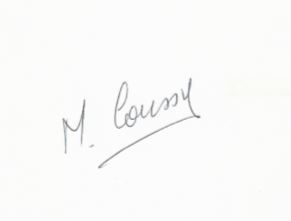 M. Coussy